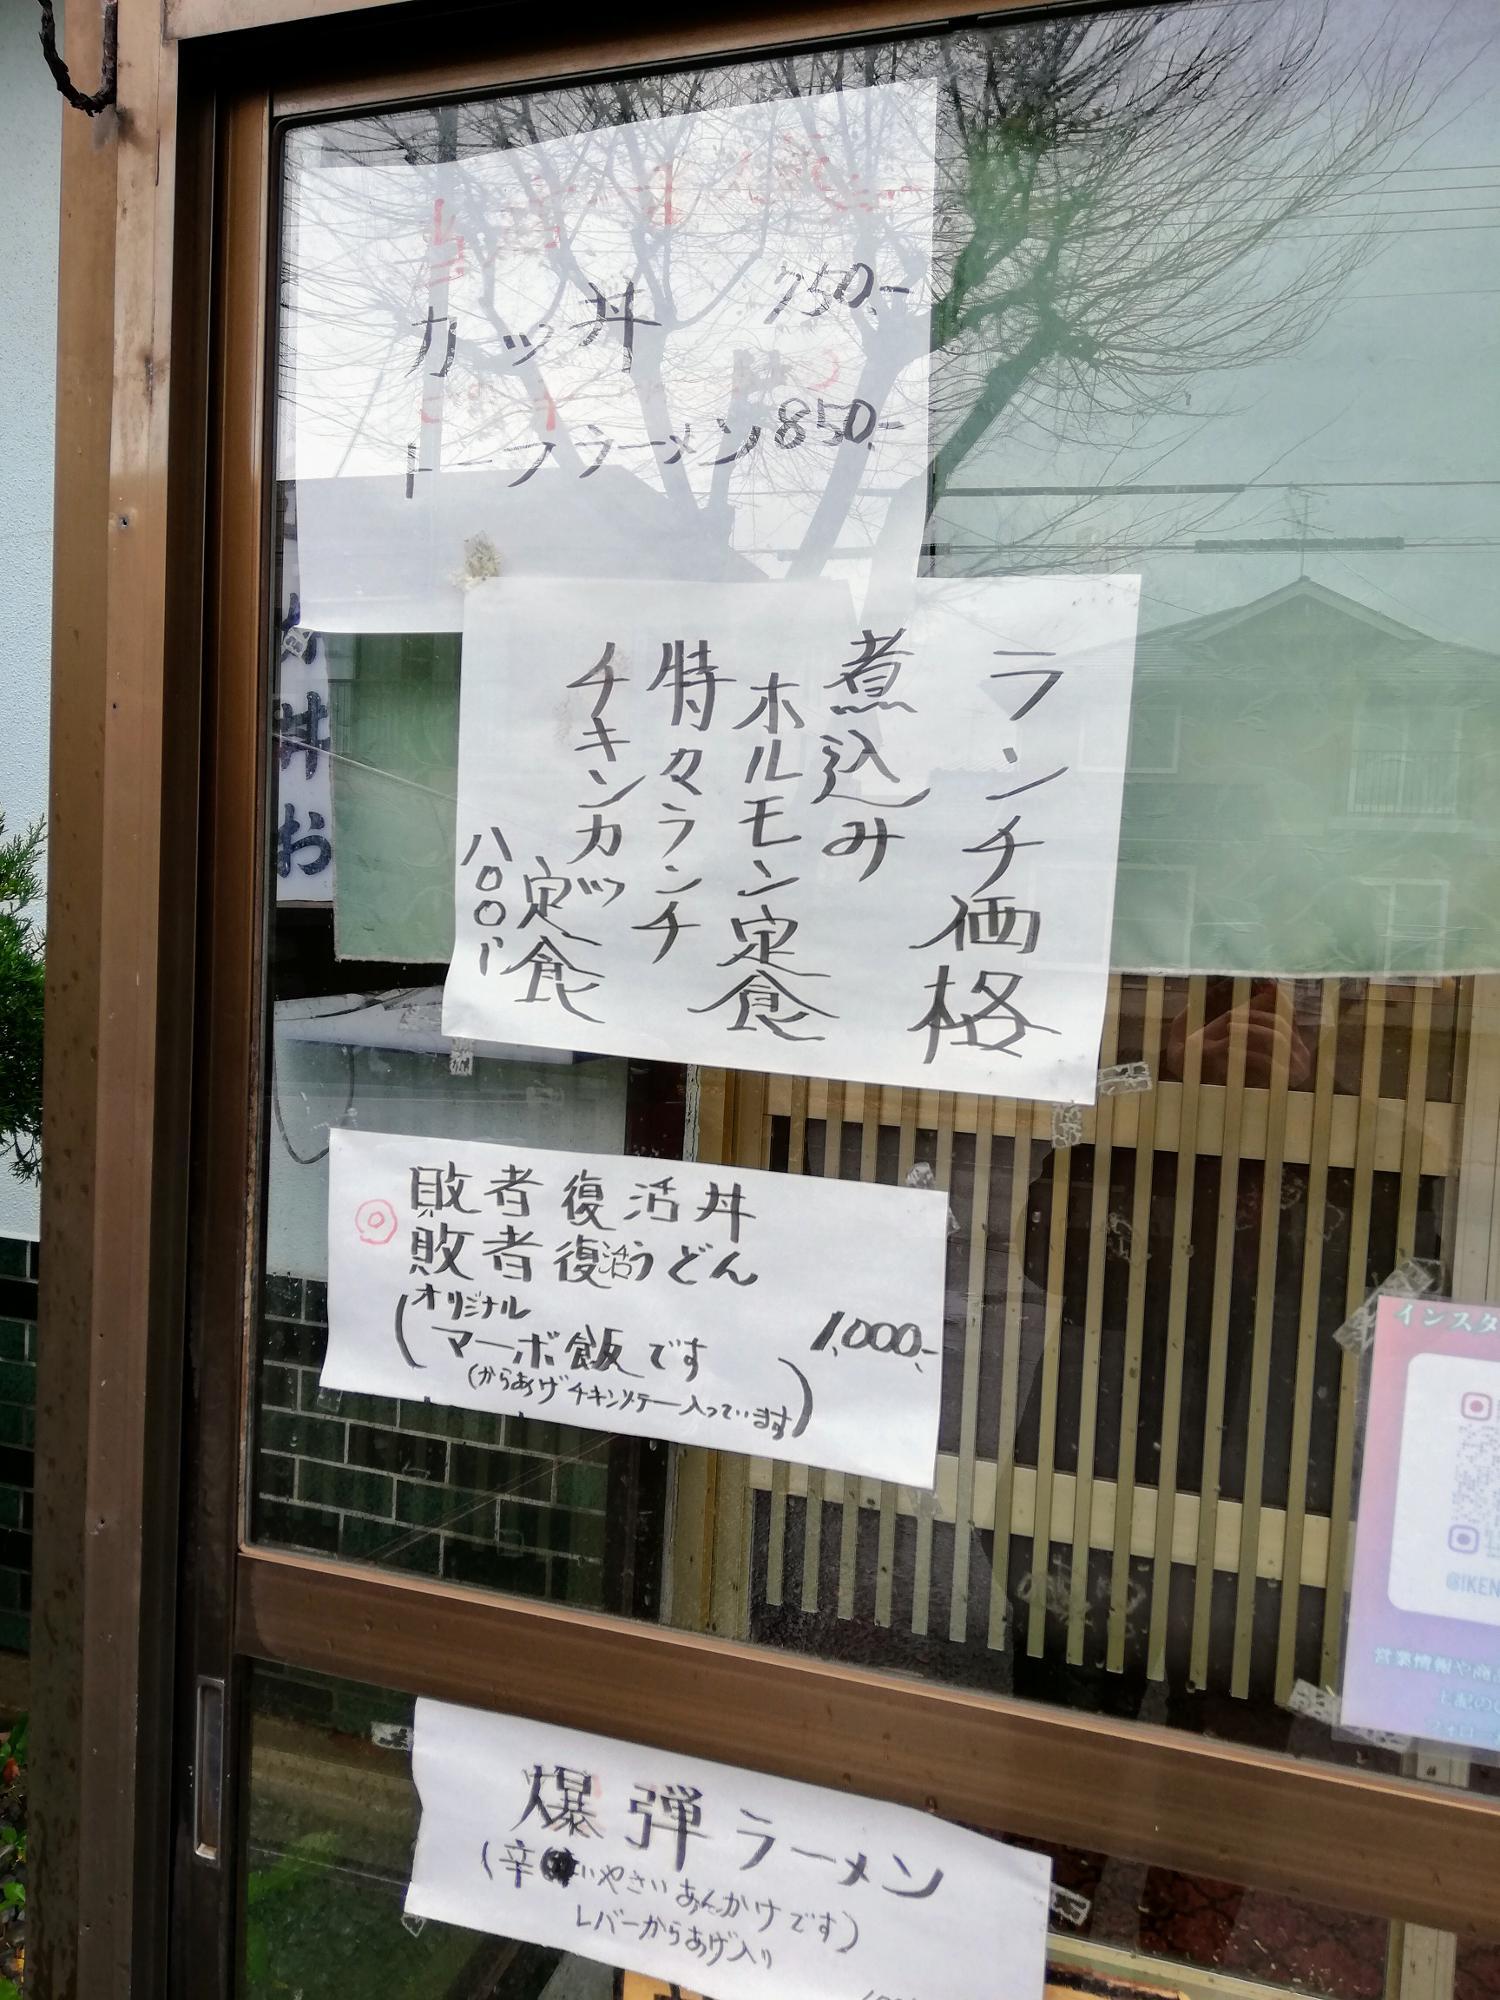 カツ丼 750.-
トーフラーメン 850.-
ランチ価格
煮込み
ホルモン定食
特々ランチ
チキンカツ
定食
八〇〇円
敗者復活丼
◎
敗者復活うどん
(オリジナル
マーボ飯です
(からあげチキンソテー入っています)
1,000.-
爆弾ラーメン
(辛いやさいあんかけです)
レバーからあげ入り
丼
お
インスタ
@IKEN
営業情報や商
上記の
フォロー